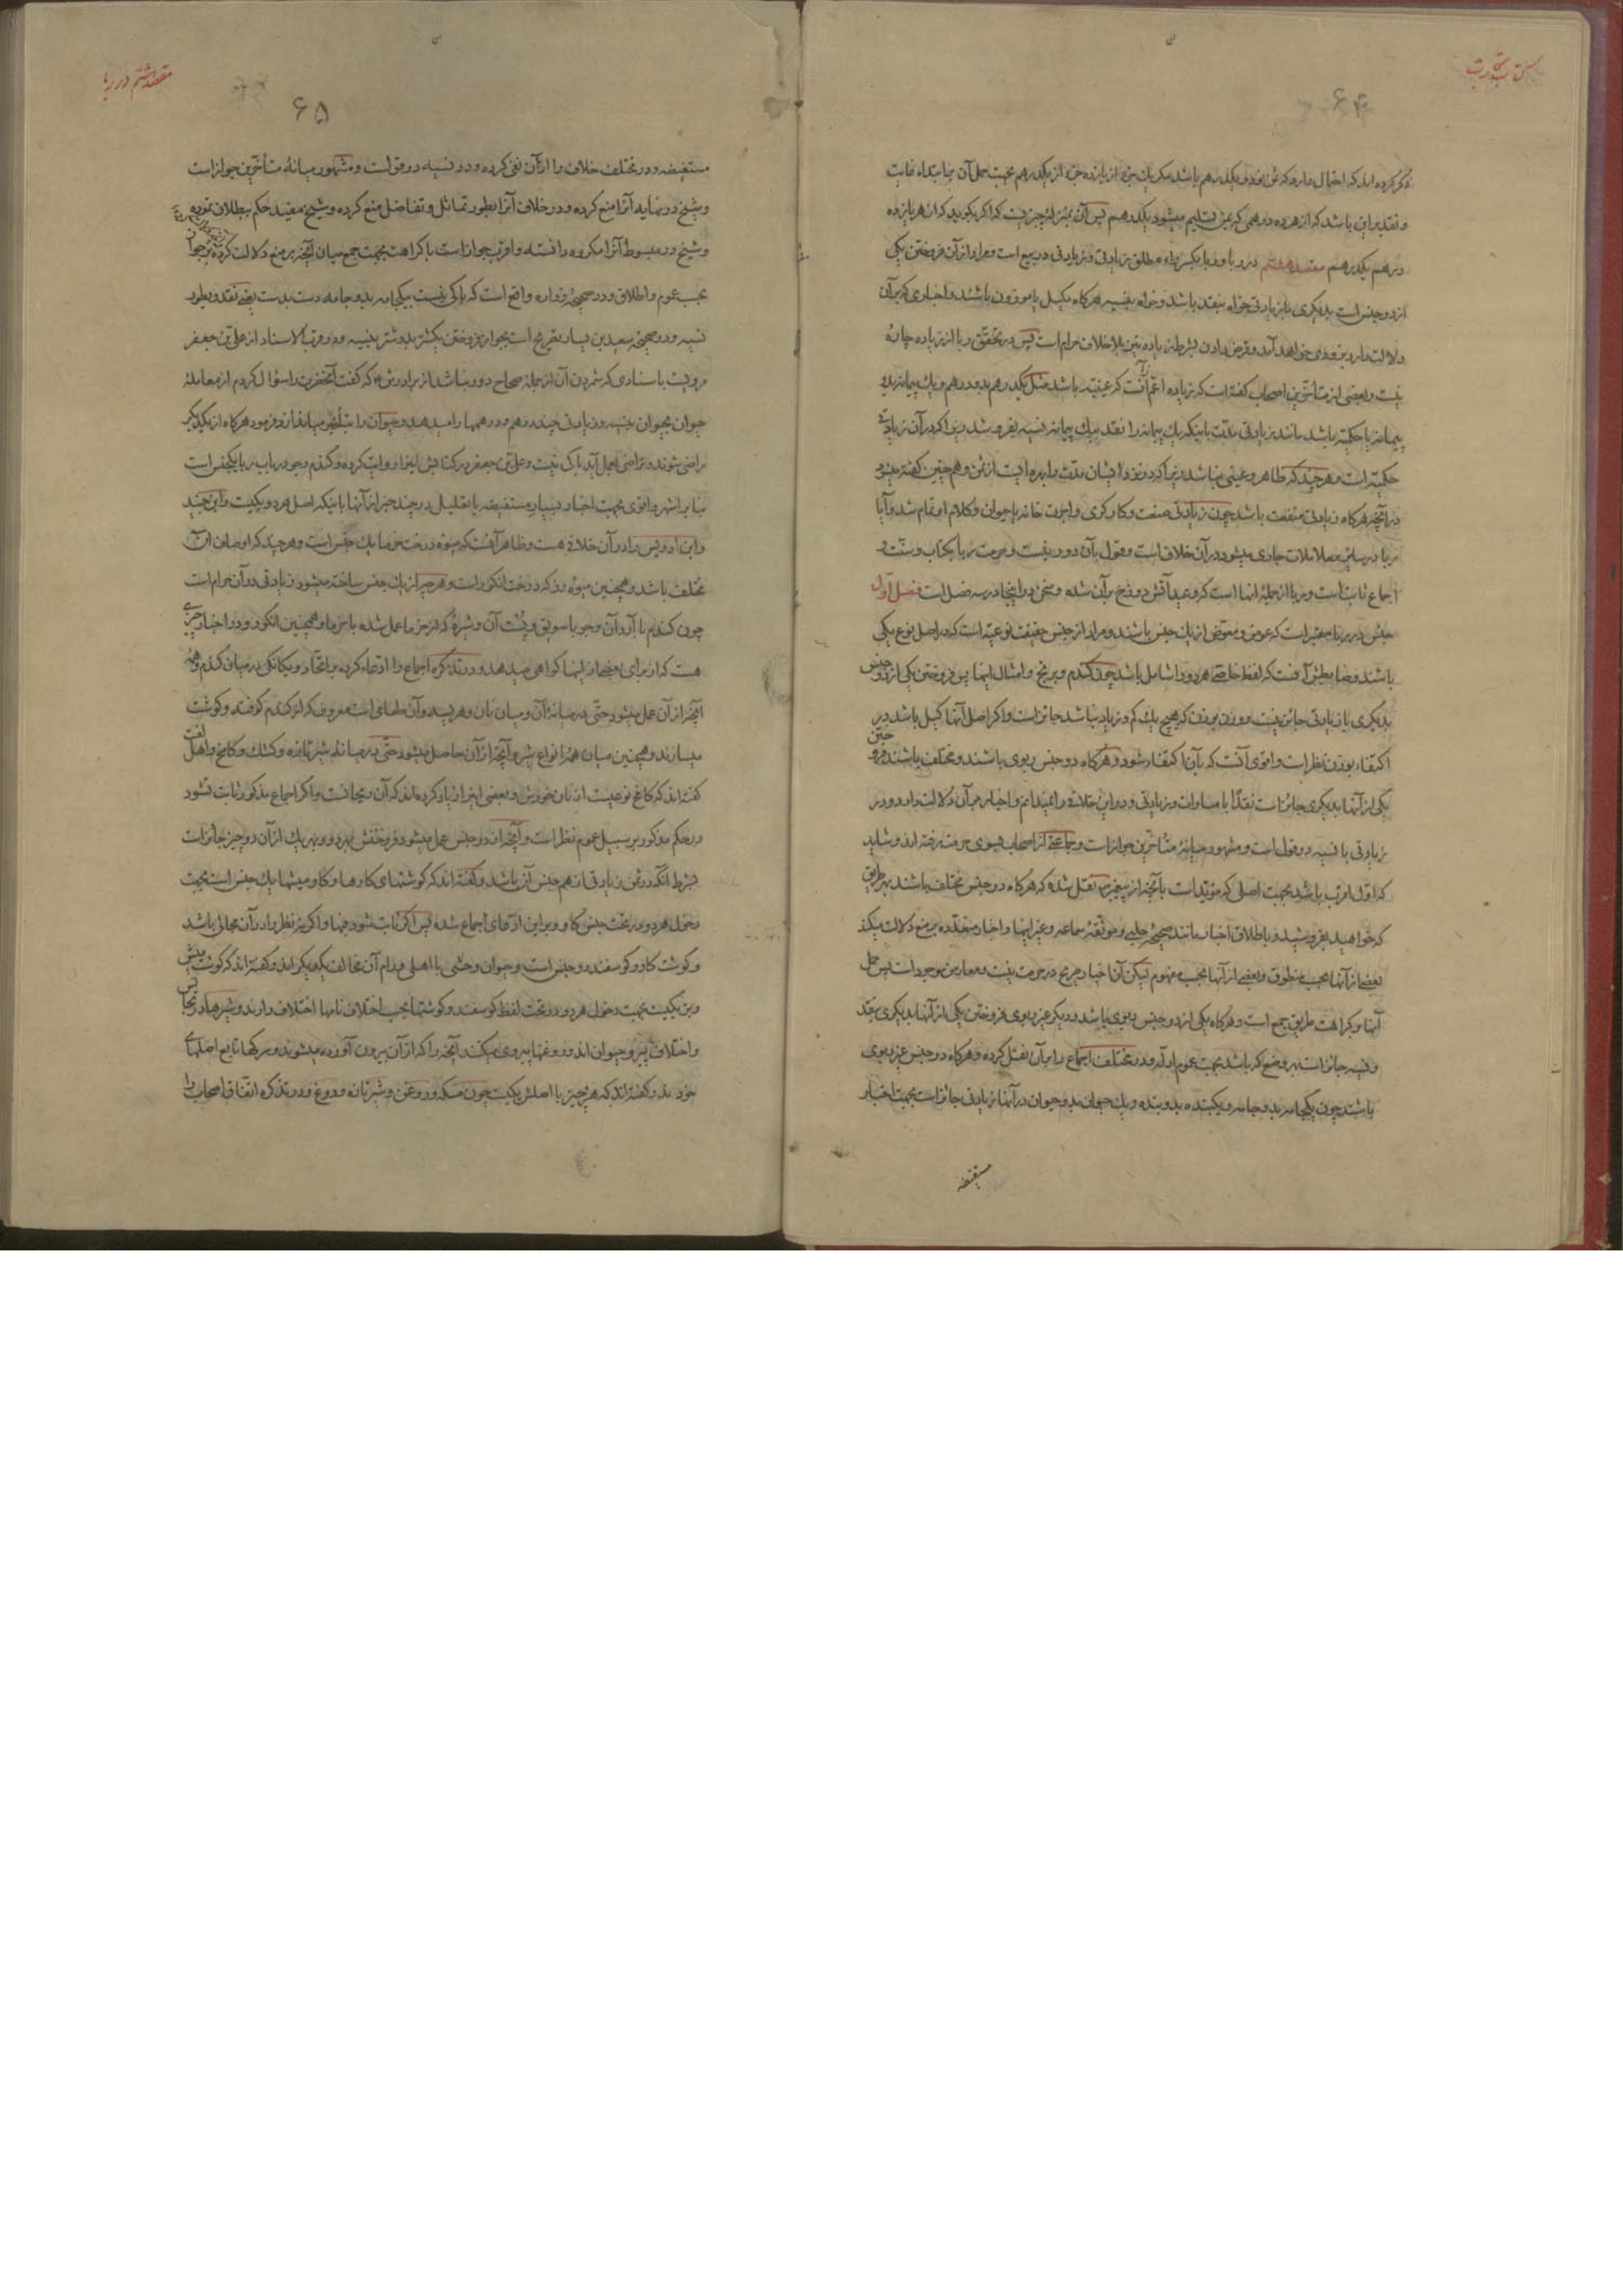 کتاب تجارت
۶۴
ذکر کرده‌اند که احتمال دارد که ثمن نود و یکدرهم باشد مگر یک جزء از یازده جزء از یکدرهم بجهت حمل آن بر ابتداء غایت
و تقدیر این باشد که از هر ده درهمی که بمن تسلیم میشود یکدرهم پس آن بمنزلهٔ چیزیست که اگر بگوید که از هر یازده
درهم یکدرهم مقصد هشتم در ربا و ربا بکسر راء مطلق زیادتی و زیادتی در بیع است و مراد از آن فروختن یکی
از دو جنس است بدیگری با زیادتی خواه بنقد باشد و خواه بنسیه هرگاه مکیل یا موزون باشند و اخباری که بر آن
دلالت دارد بزودی خواهد آمد و قرض دادن بشرط زیاده نیز بلا خلاف حرام است پس در تحقق ربا از زیاده چارهٔ
نیست و بعضی از متأخرین اصحاب گفته است که زیاده اعم از آنست که عینیه باشد مثل یکدرهم بدو درهم و یک پیمانه بدو
پیمانه یا حکمیه باشد مانند زیادتی مدت باینکه یک پیمانه را نقد بیک پیمانه نسیه بفروشد زیرا که در آن زیادتی
حکمیه است و هرچند که ظاهر و عینی نباشد زیرا که در نزد ایشان مدت را بهره ایست از ثمن و هم چنین گفته میشود
در آنچه هرگاه زیادتی منفعت باشد چون زیادتی صنعت و کارگری و اجرت خانه یا حیوان و کلام او تمام شد و آیا
ربا در سایر معاملات جاری میشود در آن خلاف است و قول بآن دور نیست و حرمت ربا بکتاب و سنت و
اجماع ثابت است و ربا از جملهٔ آنها است که وعید آتش دوزخ بر آن شده و سخن در اینجا در سه فصل است فصل اول
جنس در ربا معتبر است که عوض و معوض از یک جنس باشند و مراد از جنس حقیقت نوعیه است که در اصل نوع یکی
باشند و ضابطش آنست که لفظ خاصی هر دو را شامل باشد چون گندم و برنج و امثال اینها پس فروختن یکی از دو جنس
بدیگری با زیادتی جائز نیست و وزن بوزن که هیچ یک کم و زیاد نباشد جائز است و اگر اصل آنها کیل باشد در
اکتفاء بوزن نظر است و اقوی آنست که بآن اکتفاء شود و هرگاه دو جنس ربوی باشند و مختلف باشند فروختن
یکی از آنها بدیگری جائز است نقدا با مساوات و زیادتی و در این خلافی را نمیدانم و اخبار بر آن دلالت دارد و در
زیادتی با نسیه دو قول است و مشهور میانهٔ متأخرین جواز است و جماعتی از اصحاب بسوی حرمت رفته‌اند و شاید
که اول اقرب باشد بجهت اصلی که مؤید است بآنچه از پیغمبر ص نقل شده که هرگاه دو جنس مختلف باشند بهر طریق
که خواهید بفروشید و باطلاق اخبار مانند صحیحهٔ حلبی و موثقهٔ سماعه و غیر اینها و اخبار متعدده بر منع دلالت میکند
بعضی از آنها بحسب منطوق و بعضی از آنها بحسب مفهوم لیکن آن اخبار صریح در حرمت نیست و معارض موجود است پس حمل
آنها بر کراهت طریق جمع است و هرگاه یکی از دو جنس ربوی باشد و دیگر غیر ربوی فروختن یکی از آنها بدیگری بنقد
و نسیه جائز است بهر وضع که باشد بجهت عموم ادله و در مختلف اجماع را بر آن نقل کرده و هرگاه دو جنس غیر ربوی
باشند چون یکجامه بدو جامه و یکبنده بدو بنده و یک حیوان بدو حیوان در آنها زیادتی جائز است بجهت اخبار
مستفیضه
مقصد هشتم در ربا
۶۵
مستفیضه و در مختلف خلاف را از آن نفی کرده و در نسیه دو قول است و مشهور میانهٔ متأخرین جواز است
و شیخ در نهایه آنرا منع کرده و در خلاف آنرا بطور تماثل و تفاضل منع کرده و شیخ مفید حکم ببطلان نموده
و شیخ در مبسوط آنرا مکروه دانسته و اقرب جواز است با کراهت بجهت جمع میان آنچه بر منع دلالت کرده و بر جواز
بحسب عموم و اطلاق و در صحیحهٔ زراره واقع است که باکی نیست بیکجامه بدو جامه دست بدست یعنی نقد و بطور
نسیه و در صحیحهٔ سعید بن یسار تصریح است بجواز فروختن یکشتر بدو شتر بنسیه و در قرب الاسناد از علی بن جعفر
مرویست باسنادی که شمردن آن از جملهٔ صحاح دور نباشد از برادرش ع که گفت آنحضرت را سؤال کردم از معاملهٔ
حیوان بحیوان بنسیه و زیادتی چند درهم و درهمها را میدهد و حیوان را بتأخیر میاندازد فرمود هرگاه از یکدیگر
راضی شوند و تراضی بعمل آید باک نیست و علی بن جعفر در کتابش نیز آنرا روایت کرده و گندم و جو در باب ربا یکجنس است
بنا بر اشهر و اقوی بجهت اخبار بسیار مستفیضه با تعلیل در چند خبر از آنها باینکه اصل هر دو یکیست و ابن جنید
و ابن ادریس را در آن خلافی هست و ظاهر آنست که میوهٔ درخت خرما یک جنس است و هرچند که اوصاف آن
مختلف باشد و همچنین میوه رز که درخت انگور است و هر چیز از یک جنس ساخته میشود زیادتی در آن حرام است
چون گندم با آرد آن و جو با سویق و پست آن و شیرهٔ که از خرما عمل شده با خرما و همچنین انگور و در اخبار چیزی
هست که از برای بعضی از اینها گواهی میدهد و در تذکره اجماع را ادعاء کرده بر اتحاد و یکانگی در میان گندم و همهٔ
آنچه از آن عمل میشود حتی در میانهٔ آن و میان نان و هریسه و آن طعامی است معروف که از گندم کوفته و گوشت
میسازند و همچنین میان همهٔ انواع شیر و آنچه از آن حاصل میشود حتی در میانهٔ شیر تازه و کشک و کامخ و اهل لغت
گفته‌اند که کامخ نوعیست از نان خورش و بعضی آبی از یاد کرده‌اند که آن ریچالست و اگر اجماع مذکور ثابت نشود
در حکم مذکور بر سبیل عموم نظر است و آنچه از دو جنس عمل میشود فروختنش بهر دو و بهر یک از آن دو جنس جائز است
بشرط آنکه در ثمن زیادتی از هم جنس آن باشد و گفته‌اند که گوشتهای گاوها و گاومیشها یک جنس است بجهت
دخول هر دو در تحت جنس گاو و بر این ادعای اجماع شده پس اگر ثابت شود فبها و اگر نه نظر را در آن مجالی باشد
و گوشت گاو و گوسفند دو جنس است و حیوان وحشی با اهلی مدام آن مخالف یکدیگراند و گفته‌اند که گوشت میش
و بز یکیست بجهت دخول هر دو در تحت لفظ گوسفند و گوشتها بحسب اختلاف نامها اختلاف دارند و شیرها در تجانس
و اختلاف پیرو حیوان‌اند و روغنها پیروی میکنند آنچه را که از آن بیرون آورده میشوند و سرکها تابع اصلهای
خود‌اند و گفته‌اند که هر چیز با اصلش یکیست چون مسکه و روغن و شیر تازه و دوغ و در تذکره اتفاق اصحاب را